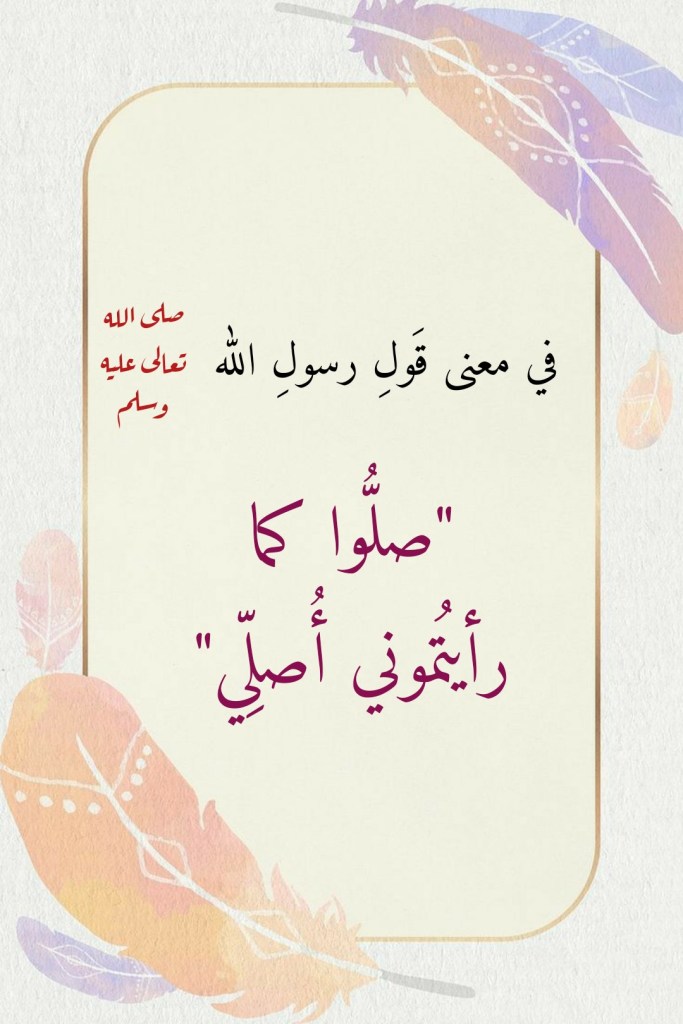 في معنى قَولِ رسولِ الله
صلى الله
تعالى عليه
وسلم
"صلُّوا كما
رأيتُموني أُصلِّي"